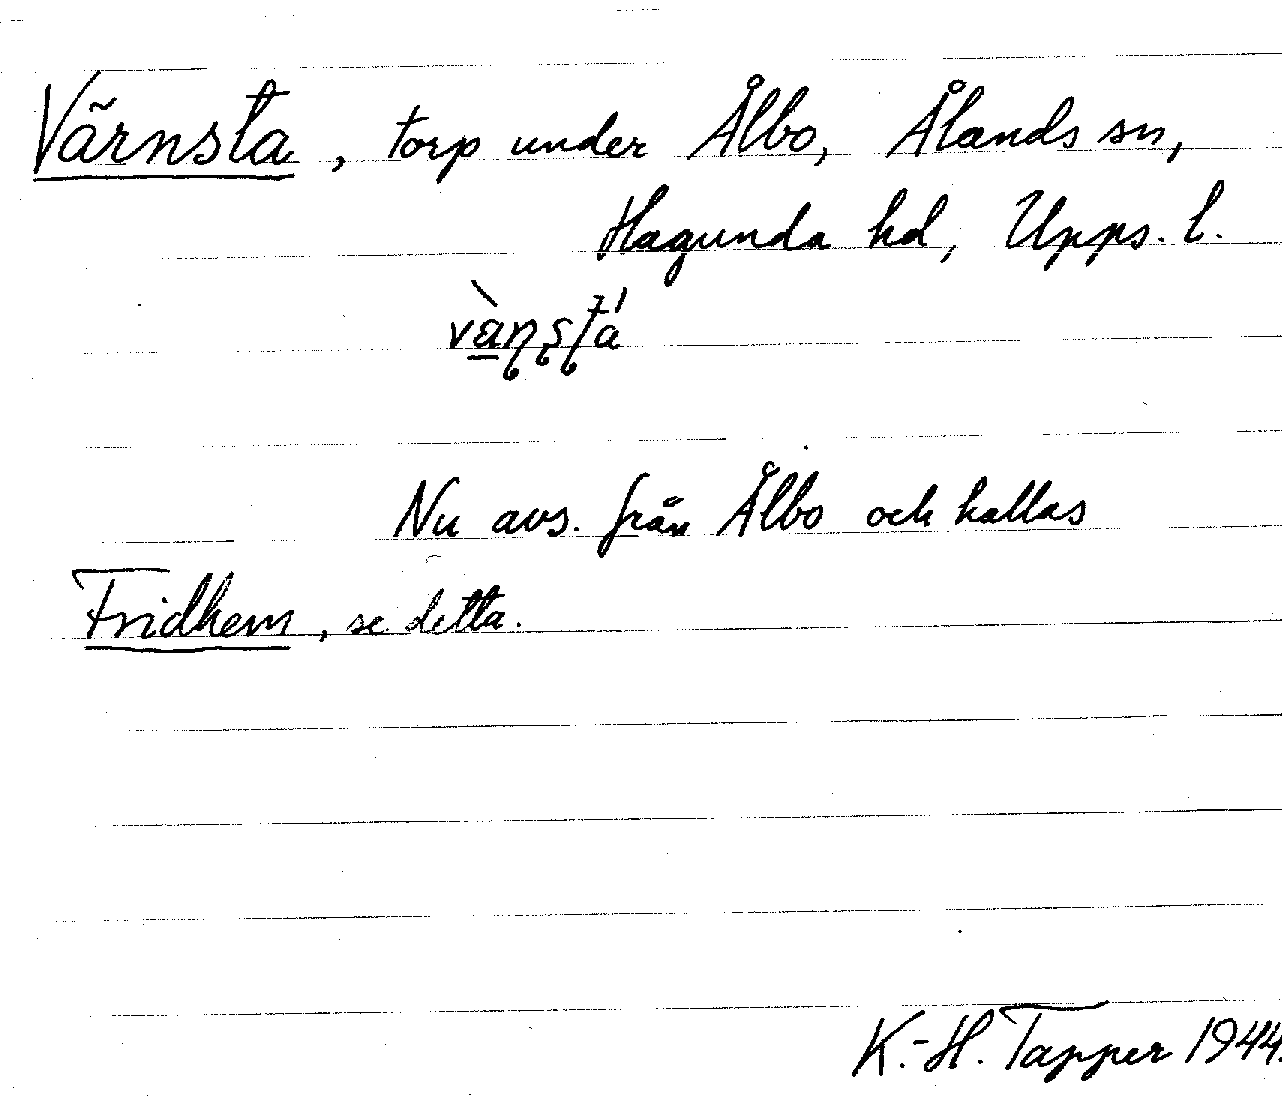 Värnsta, torp under Ålbo, Ålands sn,
Hagunda hd, Upps. l.
Nu avs. från Ålbo och kallas
Fridhem, se detta.
K.-H. Tapper 1944.